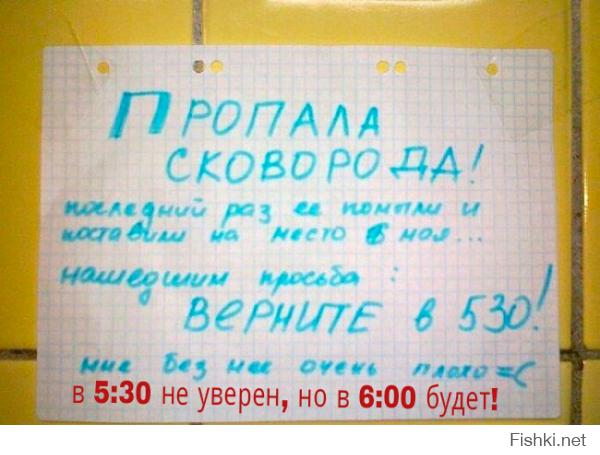 ПРОПАЛА
СКОВОРОДА!
последний раз ее помыли и
поставили на место 6 мая...
нашедшим просьба:
ВЕРНИТЕ в 530!
мне без нее очень плохо =(
в 5:30 не уверен, но в 6:00 будет!
Fishki.net